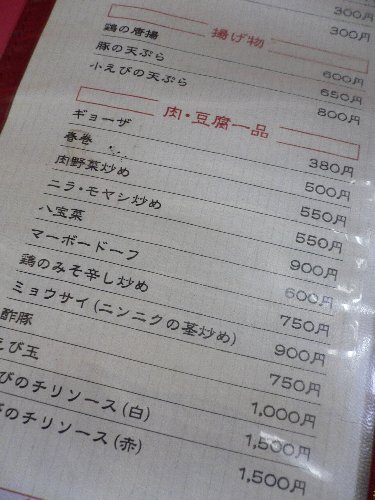 300円
300円
揚げ物
鶏の唐揚 600円
豚の天ぷら 650円
小えびの天ぷら 800円
肉・豆腐一品
ギョーザ 380円
春巻 500円
肉野菜炒め 550円
ニラ・モヤシ炒め 550円
八宝菜 900円
マーボードーフ 600円
鶏のみそ辛し炒め 750円
ミョウサイ(ニンニクの茎炒め) 900円
酢豚 750円
えび玉 1,000円
びのチリソース(白) 1,500円
びのチリソース(赤) 1,500円